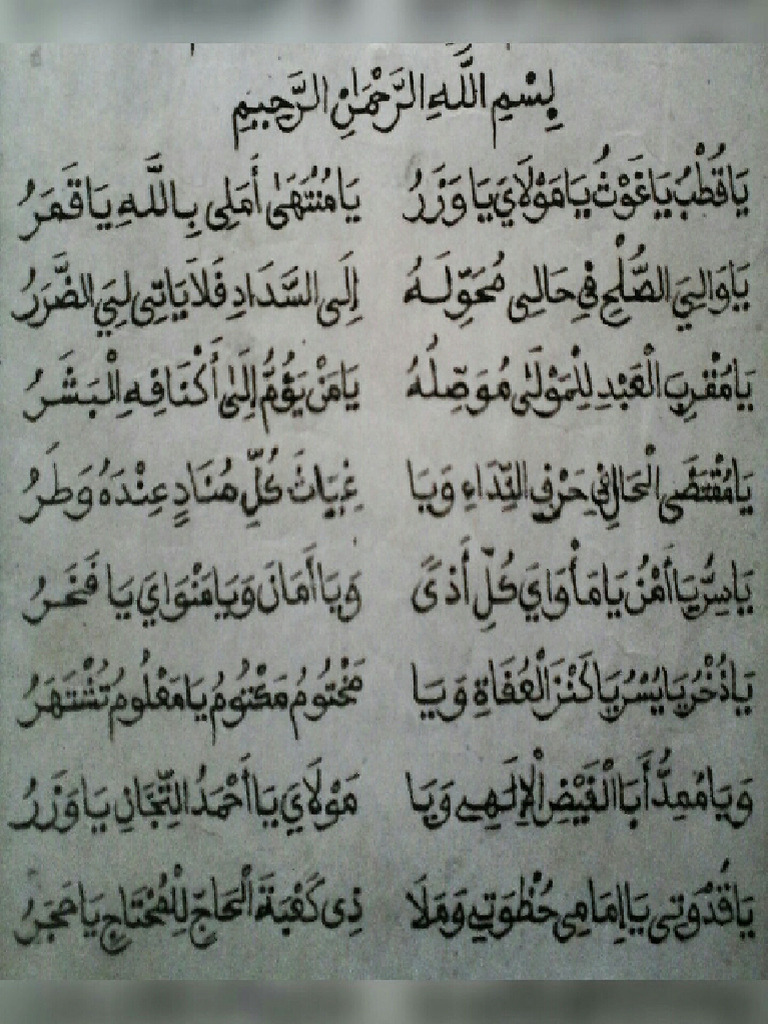 بِسْمِ اللَّهِ الرَّحْمَٰنِ الرَّحِيمِ
يَا قُطْبُ يَا غَوْثُ يَا مَوْلَايَ يَا وَزَرُ يَا مُنْتَهَىٰ أَمَلِي بِاللَّهِ يَا قَمَرُ
يَا وَالِيَ الصُّلْحِ فِي حَالِي مُحَوِّلَهُ إِلَى السَّدَادِ فَلَا يَاتِي لِيَ الضَّرَرُ
يَا مُقْرِبَ الْعَبْدِ لِلْمَوْلَىٰ مُوَصِّلُهُ يَا مَنْ يَؤُمُّ إِلَىٰ أَكْنَافِهِ الْبَشَرُ
يَا مُقْتَضَى الْحَالِ فِي حَرْفِ النِّدَاءِ وَيَا غِيَاثَ كُلِّ مُنَادٍ عِنْدَهُ وَطَرُ
يَا سِرُّ يَا أَمْنُ يَا مَأْوَايَ كُلِّ أَذًى وَيَا أَمَانَ وَيَا مَنْوَايَ يَا فَخَرُ
يَا ذُخْرُ يَا يُسْرُ يَا كَنْزَ الْعُفَاةِ وَيَا مَخْتُومُ مَكْتُومُ يَا مَعْلُومُ تُشْتَهَرُ
وَيَا مُمِدُّ أَبَا الْفَيْضِ الْإِلَهِي وَيَا مَوْلَايَ يَا أَحْمَدُ التِّجَانِ يَا وَزَرُ
يَا قُدْوَتِي يَا إِمَامِي حُظْوَتِي وَمَلَا ذِي كَعْبَةَ الْحَاجِّ لِلْمُحْتَاجِ يَا حَجَرُ